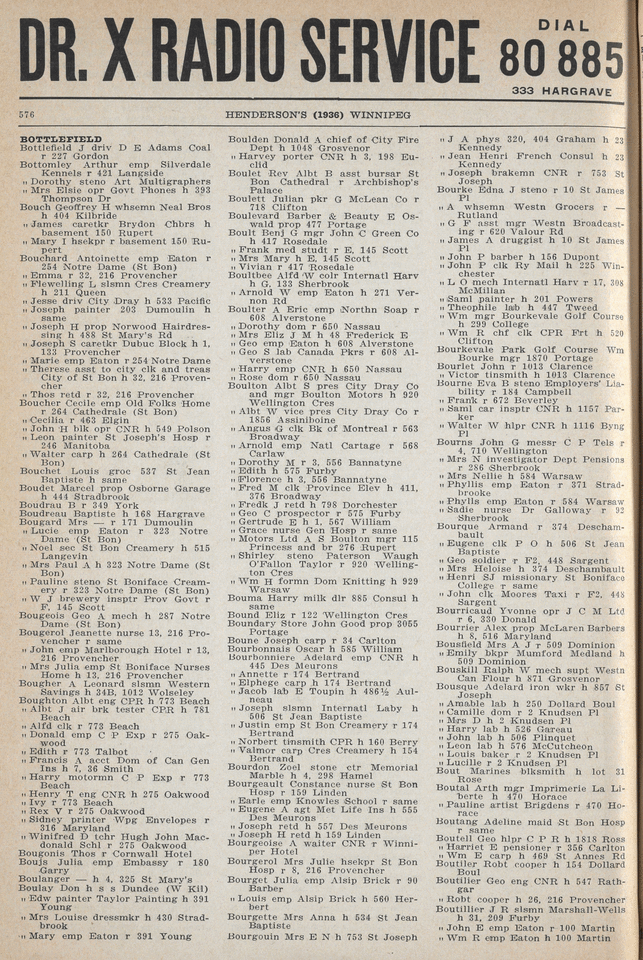 DR. X RADIO SERVICE
DIAL
80 885
333 HARGRAVE
576
HENDERSON'S (1936) WINNIPEG
BOTTLEFIELD
Bottlefield J driv D E Adams Coal
r 227 Gordon
Bottomley Arthur emp Silverdale
Kennels r 421 Langside
„ Dorothy steno Art Multigraphers
„ Mrs Elsie opr Govt Phones h 393
Thompson Dr
Bouch Geoffrey H whsemn Neal Bros
h 404 Kilbride
„ James caretkr Brydon Chbrs h
basement 150 Rupert
„ Mary I hsekpr r basement 150 Ru-
pert
Bouchard Antoinette emp Eaton r
254 Notre Dame (St Bon)
„ Emma r 32, 216 Provencher
„ Flewelling L slsmn Crees Creamery
h 211 Queen
„ Jesse driv City Dray h 533 Pacific
„ Joseph painter 203 Dumoulin h
same
„ Joseph H prop Norwood Hairdres-
sing h 488 St Mary's Rd
„ Joseph S caretkr Dubuc Block h 1,
133 Provencher
„ Marie emp Eaton r 254 Notre Dame
„ Therese asst to city clk and treas
City of St Bon h 32, 216 Proven-
cher
„ Thos retd r 32, 216 Provencher
Boucher Cecile emp Old Folks Home
r 264 Cathedrale (St Bon)
„ Cecilia r 463 Elgin
„ John H blk opr CNR h 549 Polson
„ Leon painter St Joseph's Hosp r
246 Manitoba
„ Walter carp h 264 Cathedrale (St
Bon)
Bouchet Louis groc 537 St Jean
Baptiste h same
Boudet Marcel prop Osborne Garage
h 444 Stradbrook
Boudrau B r 349 York
Boudreau Baptiste h 168 Hargrave
Bougard Mrs — r 171 Dumoulin
„ Lucie emp Eaton r 323 Notre
Dame (St Bon)
„ Noel sec St Bon Creamery h 515
Langevin
„ Mrs Paul A h 323 Notre Dame (St
Bon)
„ Pauline steno St Boniface Cream-
ery r 323 Notre Dame (St Bon)
„ W J brewery insptr Prov Govt r
F, 145 Scott
Bougeois Geo A mech h 287 Notre
Dame (St Bon)
Bougerol Jeanette nurse 13, 216 Pro-
vencher r same
„ John emp Marlborough Hotel r 13,
216 Provencher
„ Mrs Julia emp St Boniface Nurses
Home h 13, 216 Provencher
Bougher A Leonard slsmn Western
Savings h 34B, 1012 Wolseley
Boughton Albt eng CPR h 773 Beach
„ Albt J air brk tester CPR h 781
Beach
„ Alfd clk r 773 Beach
„ Donald emp C P Exp r 275 Oak-
wood
„ Edith r 773 Talbot
„ Francis A acct Dom of Can Gen
Ins h 7, 36 Smith
„ Harry motormn C P Exp r 773
Beach
„ Henry T eng CNR h 275 Oakwood
„ Ivy r 773 Beach
„ Rex V r 275 Oakwood
„ Sidney printer Wpg Envelopes r
316 Maryland
„ Winifred D tchr Hugh John Mac-
donald Schl r 275 Oakwood
Bougonis Thos r Cornwall Hotel
Boujs Julia emp Embassy r 180
Garry
Boulanger — h 4, 325 St Mary's
Boulay Don h s s Dundee (W Kil)
„ Edw painter Taylor Painting h 391
Young
„ Mrs Louise dressmkr h 430 Strad-
brook
„ Mary emp Eaton r 391 Young
Boulden Donald A chief of City Fire
Dept h 1048 Grosvenor
„ Harvey porter CNR h 3, 198 Eu-
clid
Boulet Rev Albt B asst bursar St
Bon Cathedral r Archbishop's
Palace
Boulett Julian pkr G McLean Co r
718 Clifton
Boulevard Barber & Beauty E Os-
wald prop 477 Portage
Boult Benj G mgr John C Green Co
h 417 Rosedale
„ Frank med studt r E, 145 Scott
„ Mrs Mary h E, 145 Scott
„ Vivian r 417 Rosedale
Boultbee Alfd W colr Internatl Harv
h G, 133 Sherbrook
„ Arnold W emp Eaton h 271 Ver-
non Rd
Boulter A Eric emp Northn Soap r
608 Alverstone
„ Dorothy dom r 650 Nassau
„ Mrs Eliz J M h 48 Frederick E
„ Geo emp Eaton h 608 Alverstone
„ Geo S lab Canada Pkrs r 608 Al-
verstone
„ Harry emp CNR h 650 Nassau
„ Rose dom r 650 Nassau
Boulton Albt S pres City Dray Co
and mgr Boulton Motors h 920
Wellington Cres
„ Albt W vice pres City Dray Co r
1856 Assiniboine
„ Angus G clk Bk of Montreal r 563
Broadway
„ Arnold emp Natl Cartage r 568
Carlaw
„ Dorothy M r 3, 556 Bannatyne
„ Edith h 575 Furby
„ Florence h 3, 556 Bannatyne
„ Fred M clk Province Elev h 411,
376 Broadway
„ Fredk J retd h 798 Dorchester
„ Geo C prospector r 575 Furby
„ Gertrude E h 1, 567 William
„ Grace nurse Gen Hosp r same
„ Motors Ltd A S Boulton mgr 115
Princess and br 276 Rupert
„ Shirley steno Paterson Waugh
O'Fallon Taylor r 920 Welling-
ton Cres
„ Wm H formn Dom Knitting h 929
Warsaw
Bouma Harry milk dlr 885 Consul h
same
Bound Eliz r 122 Wellington Cres
Boundary Store John Good prop 3055
Portage
Boune Joseph carp r 34 Carlton
Bourbonnais Oscar h 585 William
Bourbonniere Adelard emp CNR h
445 Des Meurons
„ Annette r 174 Bertrand
„ Elphege carp h 174 Bertrand
„ Jacob lab E Toupin h 486½ Aul-
neau
„ Joseph slsmn Internatl Laby h
506 St Jean Baptiste
„ Justin emp St Bon Creamery r 174
Bertrand
„ Norbert tinsmith CPR h 160 Berry
„ Valmor carp Cres Creamery h 154
Bertrand
Bourdon Zoel stone ctr Memorial
Marble h 4, 298 Hamel
Bourgeault Constance nurse St Bon
Hosp r 159 Linden
„ Earle emp Knowles School r same
„ Eugene A agt Met Life Ins h 555
Des Meurons
„ Joseph retd h 557 Des Meurons
„ Joseph H retd h 159 Linden
Bourgeoise A waiter CNR r Winni-
per Hotel
Bourgerol Mrs Julie hsekpr St Bon
Hosp r 8, 216 Provencher
Bourget Julia emp Alsip Brick r 90
Barber
„ Louis emp Alsip Brick h 560 Her-
bert
Bourgette Mrs Anna h 534 St Jean
Baptiste
Bourgouin Mrs E N h 753 St Joseph
„ J A phys 320, 404 Graham h 23
Kennedy
„ Jean Henri French Consul h 23
Kennedy
„ Joseph brakemn CNR r 753 St
Joseph
Bourke Edna J steno r 10 St James
Pl
„ A whsemn Westn Grocers r —
Rutland
„ G F asst mgr Westn Broadcast-
ing r 620 Valour Rd
„ James A druggist h 10 St James
Pl
„ John P barber h 156 Dupont
„ John P clk Ry Mail h 225 Win-
chester
„ L O mech Internatl Harv r 17, 308
McMillan
„ Saml painter h 201 Powers
„ Theophile lab h 447 Tweed
„ Wm mgr Bourkevale Golf Course
h 299 College
„ Wm R chf clk CPR Frt h 520
Clifton
Bourkevale Park Golf Course Wm
Bourke mgr 1870 Portage
Bourlet John r 1013 Clarence
„ Victor tinsmith h 1013 Clarence
Bourne Eva B steno Employers' Lia-
bility r 184 Campbell
„ Frank r 672 Beverley
„ Saml car insptr CNR h 1157 Par-
ker
„ Walter W hlpr CNR h 1116 Byng
Pl
Bourns John G messr C P Tels r
4, 710 Wellington
„ Mrs N investigator Dept Pensions
r 286 Sherbrook
„ Mrs Nellie h 584 Warsaw
„ Phyllis emp Eaton r 371 Strad-
brooke
„ Phylls emp Eaton r 584 Warsaw
„ Sadie nurse Dr Galloway r 92
Sherbrook
Bourque Armand r 374 Descham-
bault
„ Eugene clk P O h 506 St Jean
Baptiste
„ Geo soldier r F2, 448 Sargent
„ Mrs Heloise h 374 Deschambault
„ Henri SJ missionary St Boniface
College r same
„ John clk Moores Taxi r F2, 448
Sargent
Bourricaud Yvonne opr J C M Ltd
r 6, 330 Donald
Bourrier Alex prop McLaren Barbers
h 8, 516 Maryland
Bousfield Mrs A J r 509 Dominion
„ Emily bkpr Mumford Medland h
509 Dominion
Bouskill Ralph W mech supt Westn
Can Flour h 871 Grosvenor
Bousque Adelard iron wkr h 857 St
Joseph
„ Amable lab h 250 Dollard Boul
„ Camille dom r 2 Knudsen Pl
„ Mrs D h 2 Knudsen Pl
„ Harry lab h 526 Gareau
„ John lab h 506 Plinquet
„ Leon lab h 576 McCutcheon
„ Louis baker r 2 Knudsen Pl
„ Lucille r 2 Knudsen Pl
Bout Marines blksmith h lot 31
Lose
Boutal Arth mgr Imprimerie La Li-
berte h 470 Horace
„ Pauline artist Brigdens r 470 Ho-
race
Boutang Adeline maid St Bon Hosp
r same
Boutell Geo hlpr C P R h 1818 Ross
„ Harriet E pensioner r 356 Carlton
„ Wm E carp h 469 St Annes Rd
Boutlier Robt cooper h 154 Dollard
Boul
Boutilier Geo eng CNR h 547 Rath-
gar
„ Robt cooper h 26, 216 Provencher
Boutillier J R slsmn Marshall-Wells
h 31, 209 Furby
„ John E emp Eaton r 100 Martin
„ Wm R emp Eaton h 100 Martin